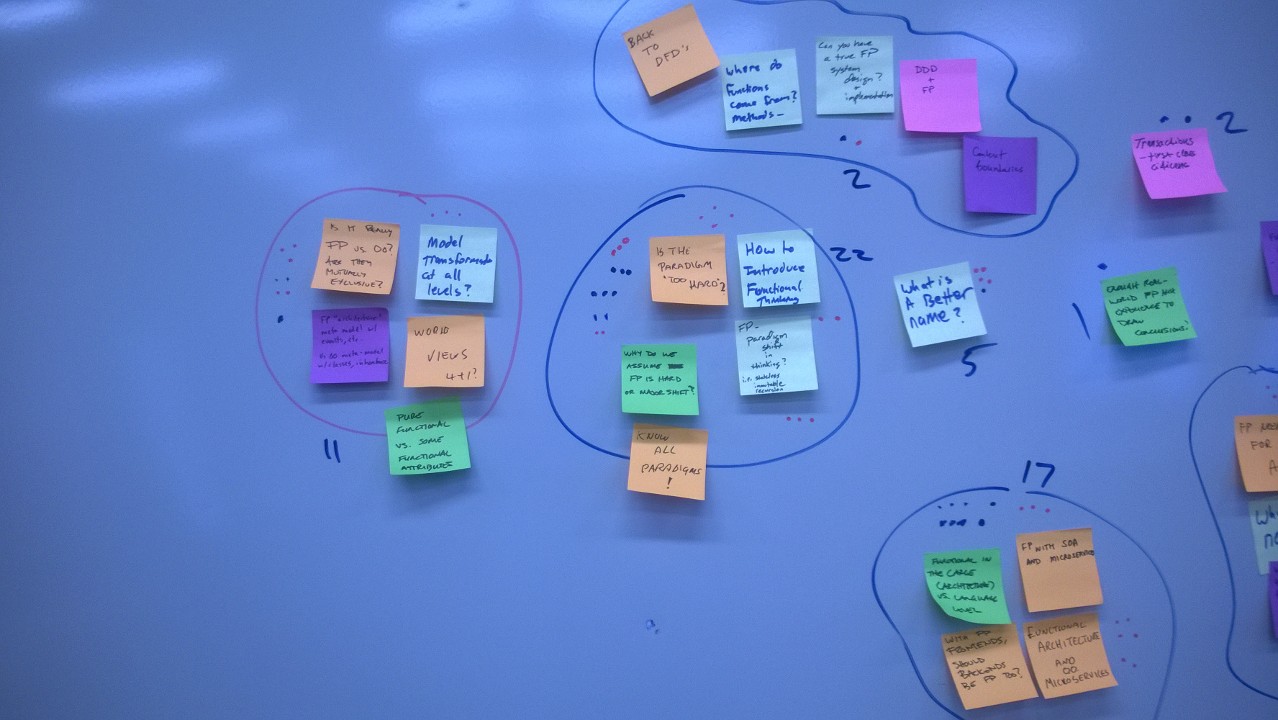 BACK
TO
DFD's
Where do
Functions
come from?
methods -
Can you have
a true FP
system
design?
+
implementation
DDD
+
FP
Context
boundaries
2
Transactions
- first class
citizens
2
Is it Really
FP vs OO?
Are they
mutually
exclusive?
Model
Transforms
at all
levels?
FP "architectures"
meta model w/
WORLD
VIEWS
4+1?
PURE
FUNCTIONAL
VS. SOME
FUNCTIONAL
ATTRIBUTES
11
IS THE
PARADIGM
"TOO HARD"?
How to
Introduce
Functional
Thinking
WHY DO WE
ASSUME
FP IS HARD
OR MAJOR SHIFT?
FP -
paradigm
shift
in
thinking?
i.e. stateless
immutable
recursion
KNOW
ALL
PARADIGMS
!
22
What is
A Better
name?
5
ENOUGH REAL-
WORLD FP
EXPERIENCE TO
DRAW
CONCLUSIONS?
1
17
FUNCTIONAL IN
THE LARGE
(ARCHITECTURE)
VS. LANGUAGE
LEVEL
FP WITH SOA
AND MICROSERVICES
WITH FP
FRONTENDS,
SHOULD
BACKENDS
BE FP TOO?
FUNCTIONAL
ARCHITECTURE
AND
OO
MICROSERVICES
FP
FOR